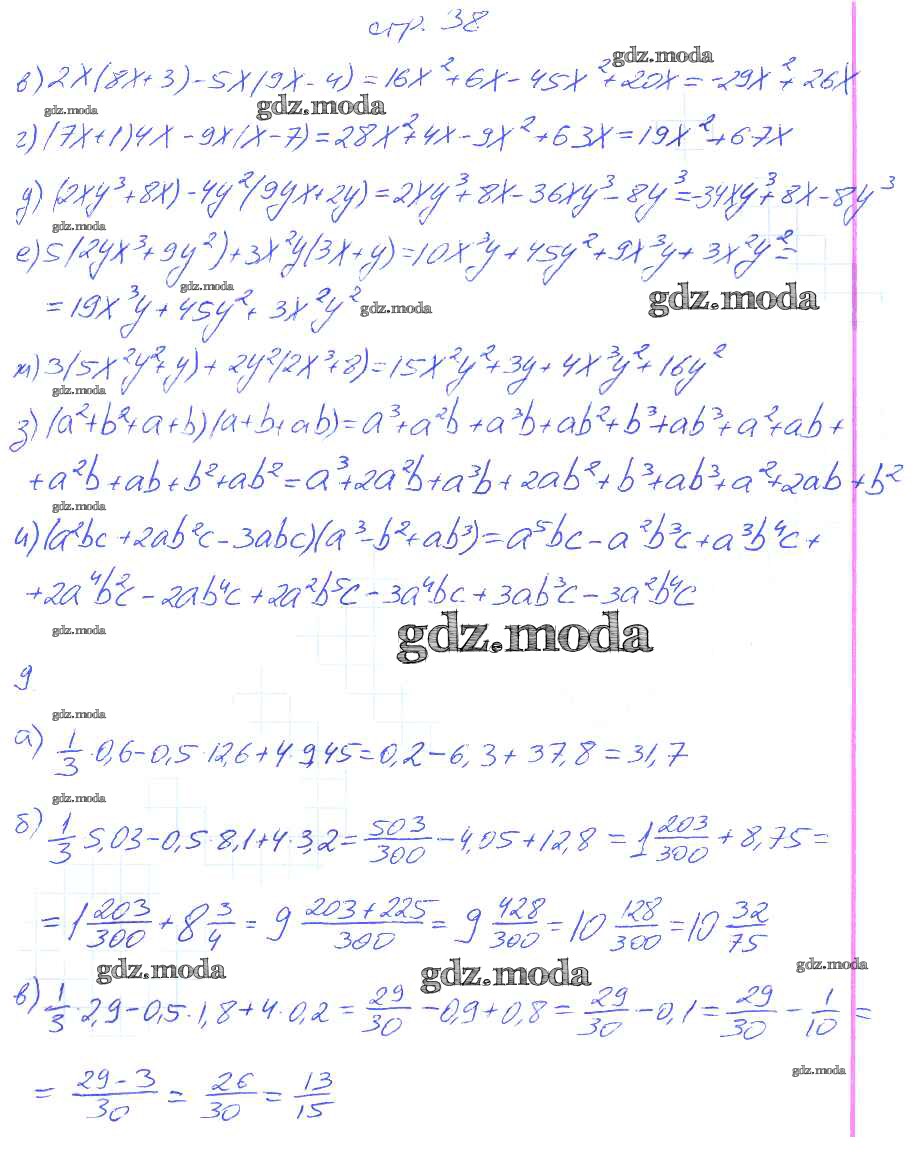 стр. 38
gdz.moda
в) 2x(8x+3)-5x(9x-4)=16x²+6x-45x²+20x=-29x²+26x
gdz.moda gdz.moda
г) (7x+1)4x-9x(x-7)=28x²+4x-9x²+63x=19x²+67x
д) (2xy³+8x)-4y²(9yx+2y)=2xy³+8x-36xy³-8y³=-34xy³+8x-8y³
gdz.moda
е) 5(2yx³+9y²)+3x²y(3x+y)=10x³y+45y²+9x³y+3x²y²=
gdz.moda gdz.moda
=19x³y+45y²+3x²y² gdz.moda
ж) 3(5x²y²+y)+2y²(2x³+8)=15x²y²+3y+4x³y²+16y²
gdz.moda
з) (a²+b²+a+b)(a+b+ab)=a³+a²b+a³b+ab²+b³+ab³+a²+ab+
+a²b+ab+b²+ab²=a³+2a²b+a³b+2ab²+b³+ab³+a²+2ab+b²
gdz.moda
и) (a²bc+2ab²c-3abc)(a³-b²+ab³)=a⁵bc-a²b³c+a³b⁴c+
+2a⁴b²c-2ab⁴c+2a²b⁵c-3a⁴bc+3ab³c-3a²b⁴c
gdz.moda gdz.moda
9
gdz.moda
а) 1/3·0,6-0,5·12,6+4·9,45=0,2-6,3+37,8=31,7
gdz.moda
б) 1/3 5,03-0,5·8,1+4·3,2=503/300-4,05+12,8=1 203/300+8,75=
=1 203/300+8 3/4=9 203+225/300=9 428/300=10 128/300=10 32/75
gdz.moda gdz.moda gdz.moda
в) 1/3·2,9-0,5·1,8+4·0,2=29/30-0,9+0,8=29/30-0,1=29/30-1/10=
gdz.moda
=29-3/30=26/30=13/15